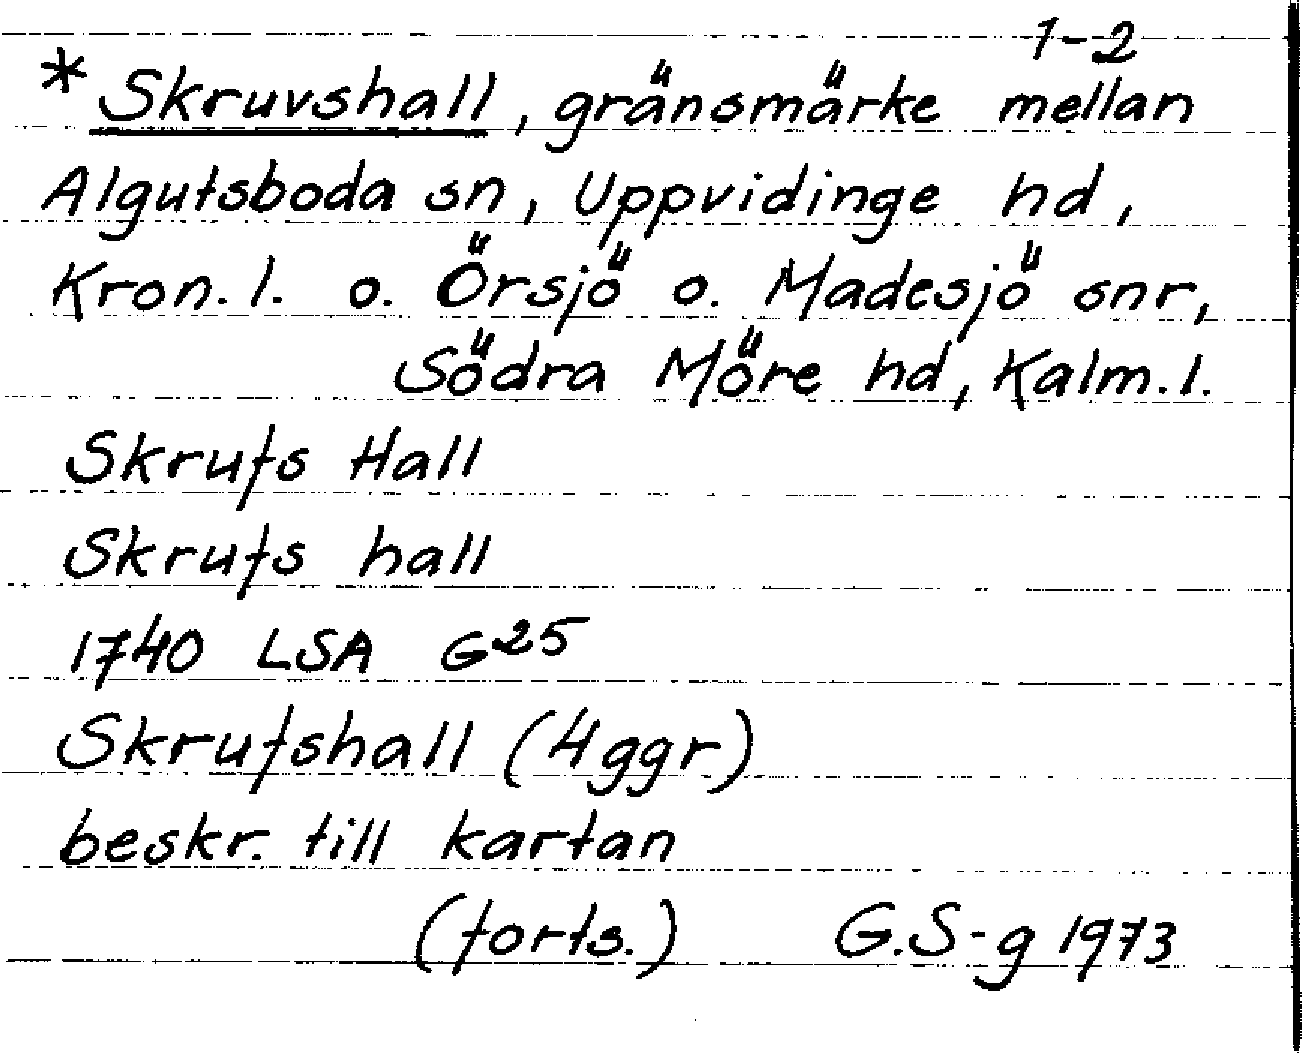 1-2
* Skruvshall, gränsmärke mellan
Algutsboda sn, Uppvidinge hd,
Kron. l. o. Örsjö o. Madesjö snr,
Södra Möre hd, Kalm. l.
Skrufs Hall
Skrufs hall
1740 LSA G25
Skrufshall (4 ggr)
beskr. till kartan
(forts.) G.S-g 1973